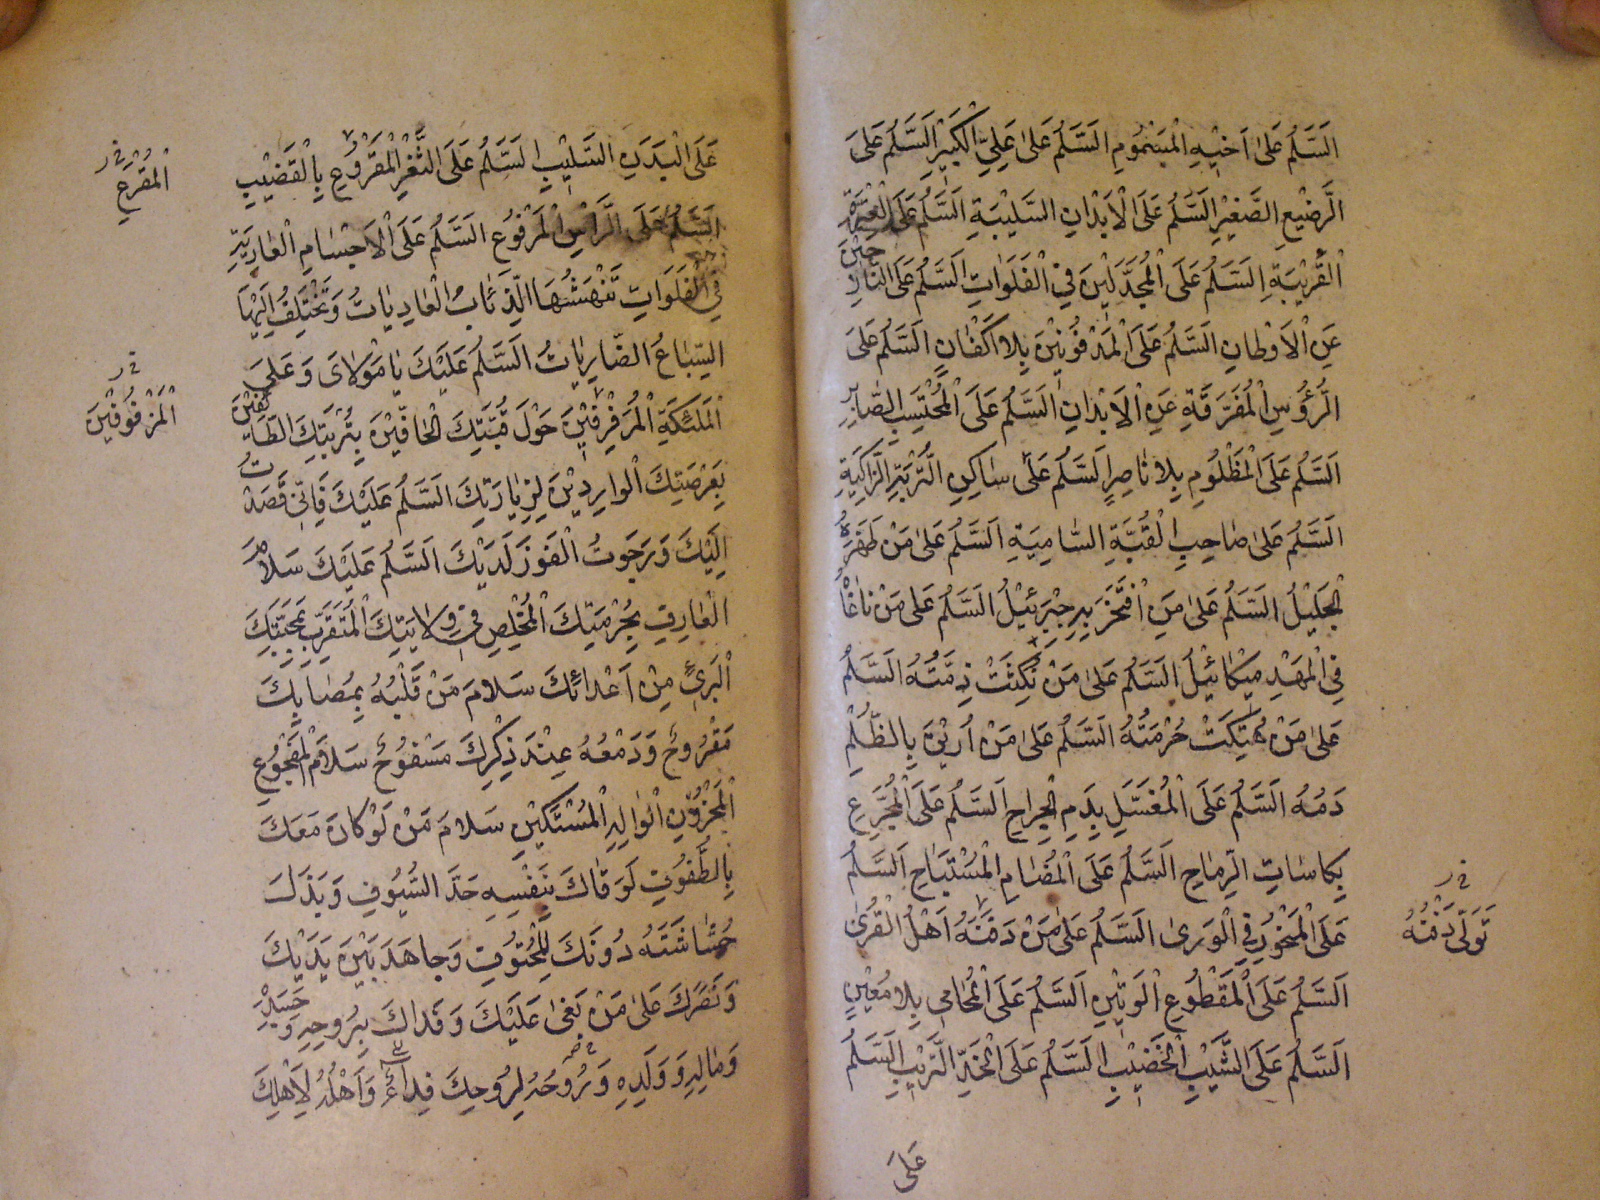 اَلسَّلٰمُ عَلىٰ اَخِيْهِ الْمَسْمُومِ اَلسَّلٰمُ عَلىٰ عَلِيِّ الْكَبِيْرِ اَلسَّلٰمُ عَلَى
الرَّضِيْعِ الصَّغِيْرِ اَلسَّلٰمُ عَلَى الْاَبْدَانِ السَّلِيْبَةِ اَلسَّلٰمُ عَلَى الْعِتْرَةِ
الْقَرِيْبَةِ اَلسَّلٰمُ عَلَى الْمُجَدَّلِيْنَ فِي الْفَلَوَاتِ اَلسَّلٰمُ عَلَى النَّازِحِيْنَ
عَنِ الْاَوْطَانِ اَلسَّلٰمُ عَلَى الْمَدْفُوْنِيْنَ بِلَا اَكْفَانٍ اَلسَّلٰمُ عَلَى
الرُّؤُسِ الْمُفَرَّقَةِ عَنِ الْاَبْدَانِ اَلسَّلٰمُ عَلَى الْمُحْتَسِبِ الصَّابِرِ
اَلسَّلٰمُ عَلَى الْمَظْلُومِ بِلَا نَاصِرٍ اَلسَّلٰمُ عَلىٰ سَاكِنِ التُّرْبَةِ الزَّاكِيَةِ
اَلسَّلٰمُ عَلىٰ صَاحِبِ الْقُبَّةِ السَّامِيَةِ اَلسَّلٰمُ عَلىٰ مَنْ طَهَّرَهُ
الْجَلِيْلُ اَلسَّلٰمُ عَلىٰ مَنِ افْتَخَرَ بِهِ جَبْرَئِيْلُ اَلسَّلٰمُ عَلىٰ مَنْ نَاغَاهُ
فِي الْمَهْدِ مِيْكَائِيْلُ اَلسَّلٰمُ عَلىٰ مَنْ نُكِثَتْ ذِمَّتُهُ اَلسَّلٰمُ
عَلىٰ مَنْ هُتِكَتْ حُرْمَتُهُ اَلسَّلٰمُ عَلىٰ مَنْ اُرِيْقَ بِالظُّلْمِ
دَمُهُ اَلسَّلٰمُ عَلَى الْمُغَسَّلِ بِدَمِ الْجِرَاحِ اَلسَّلٰمُ عَلَى الْمُجَرَّعِ
بِكَاسَاتِ الرِّمَاحِ اَلسَّلٰمُ عَلَى الْمُضَامِ الْمُسْتَبَاحِ اَلسَّلٰمُ
عَلَى الْمَنْحُورِ فِي الْوَرىٰ اَلسَّلٰمُ عَلىٰ مَنْ دَفَنَهُ اَهْلُ الْقُرىٰ
تَوَلّىٰ دَفْنَهُ
اَلسَّلٰمُ عَلَى الْمَقْطُوعِ الْوَتِيْنِ اَلسَّلٰمُ عَلَى الْمُحَامِي بِلَا مُعِيْنٍ
اَلسَّلٰمُ عَلَى الشَّيْبِ الْخَضِيْبِ اَلسَّلٰمُ عَلَى الْخَدِّ التَّرِيْبِ اَلسَّلٰمُ
عَلَى
عَلَى الْبَدَنِ السَّلِيْبِ اَلسَّلٰمُ عَلَى الثَّغْرِ الْمَقْرُوعِ بِالْقَضِيْبِ
الْمُقْرَعِ
اَلسَّلٰمُ عَلَى الرَّاْسِ الْمَرْفُوعِ اَلسَّلٰمُ عَلَى الْاَجْسَامِ الْعَارِيَةِ
فِي الْفَلَوَاتِ تَنْهَشُهَا الذِّئَابُ الْعَادِيَاتُ وَتَخْتَلِفُ اِلَيْهَا
السِّبَاعُ الضَّارِيَاتُ اَلسَّلٰمُ عَلَيْكَ يَا مَوْلَايَ وَعَلَى
الْمَلٰئِكَةِ الْمُرَفْرِفِيْنَ حَوْلَ قُبَّتِكَ الْحَافِّيْنَ بِتُرْبَتِكَ الطَّائِفِيْنَ
الْمَزْفُوفِيْنَ
بِعَرْصَتِكَ الْوَارِدِيْنَ لِزِيَارَتِكَ اَلسَّلٰمُ عَلَيْكَ فَاِنِّي قَصَدْتُ
اِلَيْكَ وَرَجَوْتُ الْفَوْزَ لَدَيْكَ اَلسَّلٰمُ عَلَيْكَ سَلَامَ
الْعَارِفِ بِحُرْمَتِكَ الْمُخْلِصِ فِي وَلَايَتِكَ الْمُتَقَرِّبِ بِمَحَبَّتِكَ
الْبَرِيْءِ مِنْ اَعْدَائِكَ سَلَامَ مَنْ قَلْبُهُ بِمُصَابِكَ
مَقْرُوحٌ وَدَمْعُهُ عِنْدَ ذِكْرِكَ مَسْفُوحٌ سَلَامَ الْمَفْجُوعِ
الْمَحْزُونِ الْوَالِهِ الْمُسْتَكِيْنِ سَلَامَ مَنْ لَوْ كَانَ مَعَكَ
بِالطُّفُوفِ لَوَقَاكَ بِنَفْسِهِ حَدَّ السُّيُوفِ وَبَذَلَ
حُشَاشَتَهُ دُونَكَ لِلْحُتُوفِ وَجَاهَدَ بَيْنَ يَدَيْكَ
وَنَصَرَكَ عَلىٰ مَنْ بَغىٰ عَلَيْكَ وَفَدَاكَ بِرُوحِهِ وَجَسَدِهِ
وَمَالِهِ وَوَلَدِهِ وَرُوحُهُ لِرُوحِكَ فِدَاءٌ وَاَهْلُهُ لِاَهْلِكَ